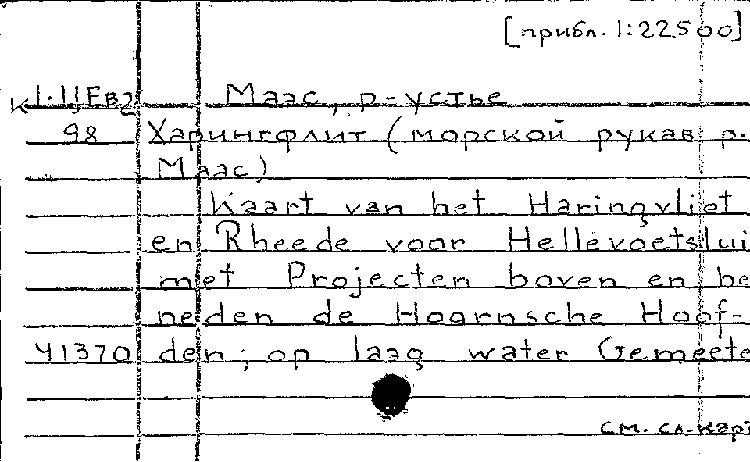 [прибл. 1:22500]
К1-ЦЕв2 Маас, р-устье
98 Харингфлит (морской рукав р.
Маас)
Kaart van het Haringvliet
en Rheede voor Hellevoetslui
met Projecten boven en be
neden de Hoornsche Hoof-
41370 den; op laag water Gemeete
см. сл. карт